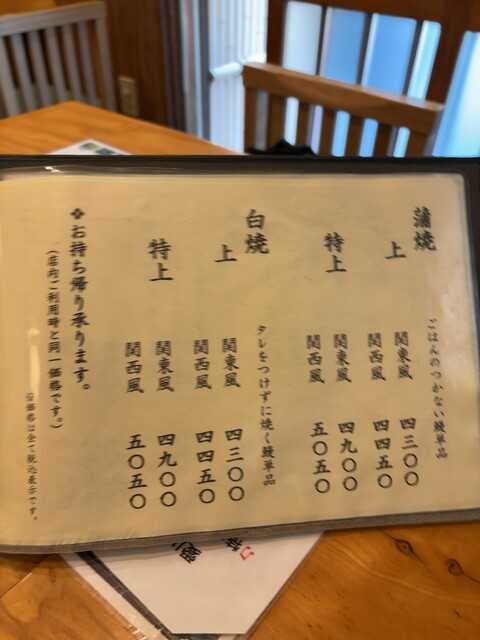 蒲焼
ごはんのつかない鰻単品
上
関東風 四三〇〇
関西風 四四五〇
特上
関東風 四九〇〇
関西風 五〇五〇
白焼
タレをつけずに焼く鰻単品
上
関東風 四三〇〇
関西風 四四五〇
特上
関東風 四九〇〇
関西風 五〇五〇
❖お持ち帰り承ります。
(店内ご利用時と同一価格です。)
※価格は全て税込表示です。